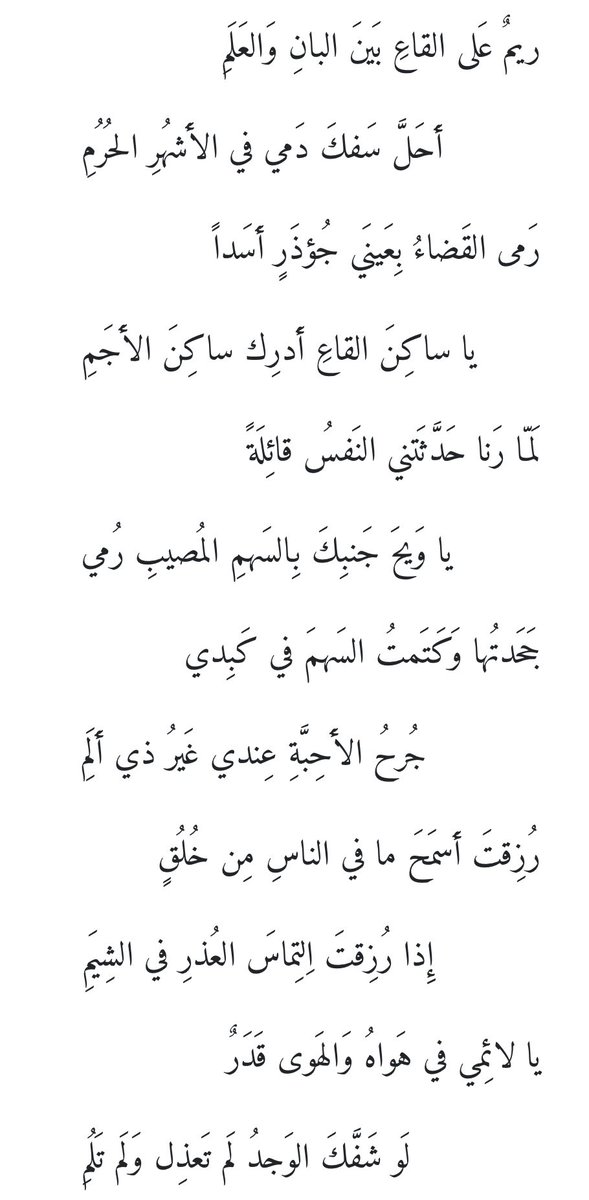 ريمٌ عَلى القاعِ بَينَ البانِ وَالعَلَمِ
أَحَلَّ سَفكَ دَمي في الأَشهُرِ الحُرُمِ
رَمى القَضاءُ بِعَينَي جُؤذَرٍ أَسَداً
يا ساكِنَ القاعِ أَدرِك ساكِنَ الأَجَمِ
لَمّا رَنا حَدَّثَتني النَفسُ قائِلَةً
يا وَيحَ جَنبِكَ بِالسَهمِ المُصيبِ رُمي
جَحَدتُها وَكَتَمتُ السَهمَ في كَبِدي
جُرحُ الأَحِبَّةِ عِندي غَيرُ ذي أَلَمِ
رُزِقتَ أَسمَحَ ما في الناسِ مِن خُلُقٍ
إِذا رُزِقتَ اِلتِماسَ العُذرِ في الشِيَمِ
يا لائِمي في هَواهُ وَالهَوى قَدَرٌ
لَو شَفَّكَ الوَجدُ لَم تَعذِل وَلَم تَلُمِ